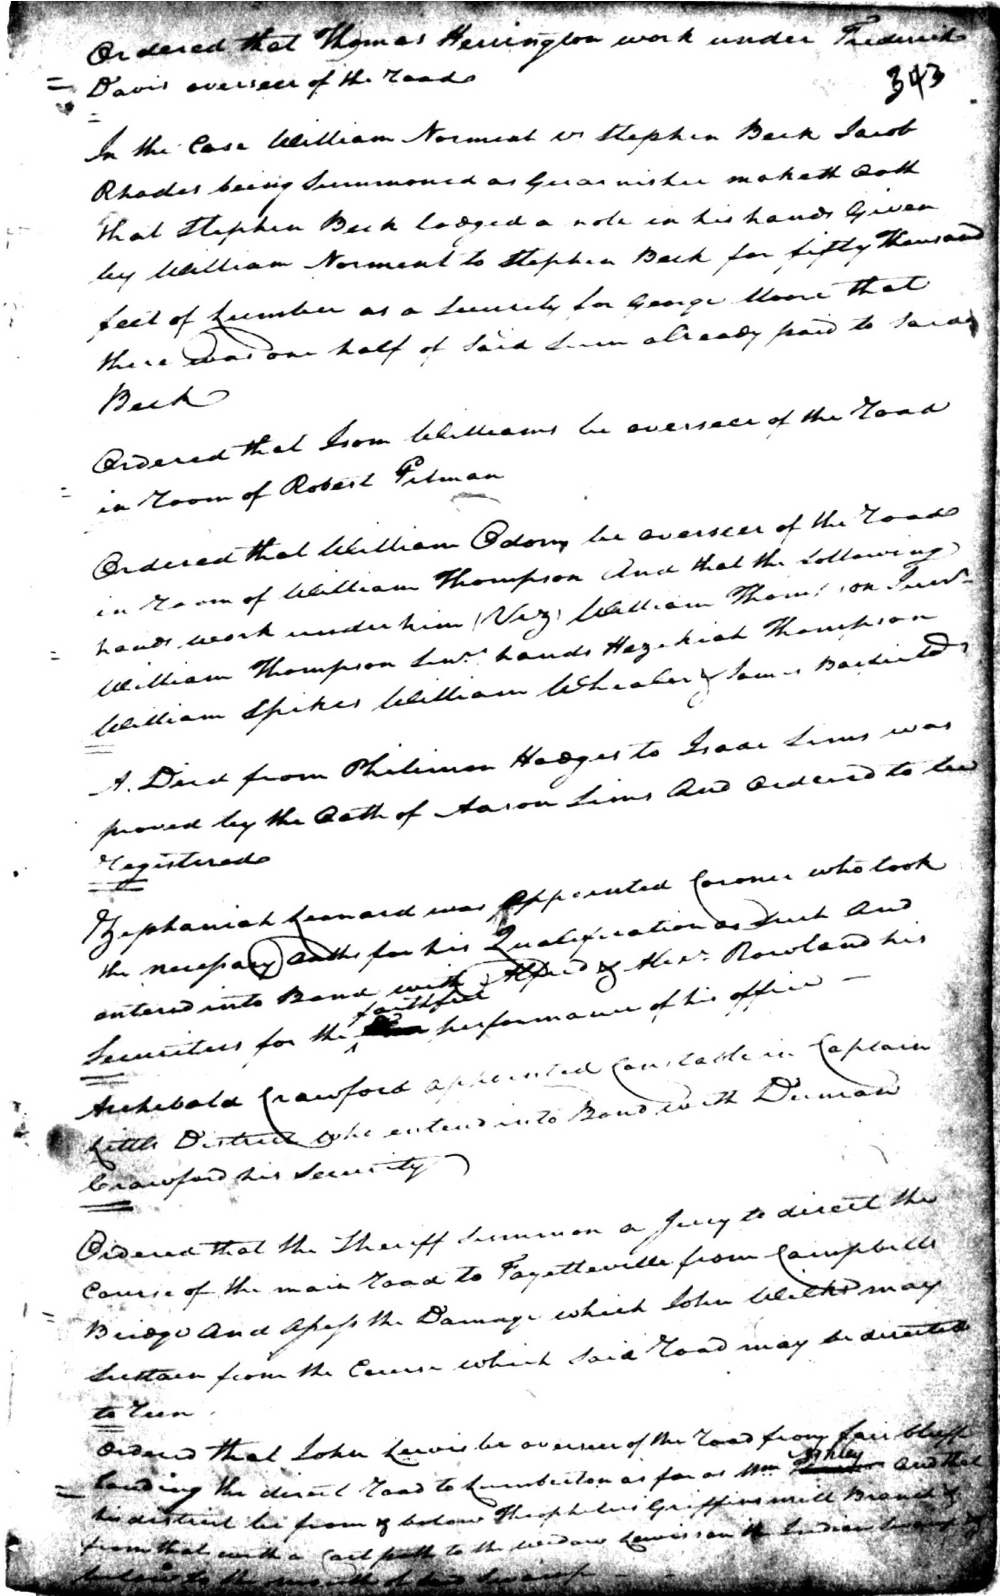 Ordered that Thomas Herrington work under Frederick
343
Davis overseer of the road
In the Case William Norment vs Stephen Beck Jacob
Rhodes being Summoned as Guarnishee maketh Oath
that Stephen Beck lodged a note in his hands Given
by William Norment to Stephen Beck for fifty thousand
feet of Lumber as a Security for George Moore that
there was one half of said Sum already paid to said
Beck
Ordered that Isom Williams be overseer of the Road
in room of Robert Pitman
Ordered that William Odom be overseer of the Road
in room of William Thompson And that the following
hands work under him (Viz) William Thompson Junr
William Thompson Senr hands Hezekiah Thompson
William Spikes William Wheeler & James Barfield
A Deed from Philimon Hodges to Isaac Sims was
proved by the Oath of Aaron Sims And Ordered to be
registered
Zephaniah Leonard was Appointed Coroner who took
the necessary Oaths for his Qualification as Such And
entered into Bond with Alfred & Alexr Rowland his
Securities for the faithful performance of his office
Archibald Crawford appointed Constable in Captain
Little District who entered into Bond with Duncan
Crawford his Security
Ordered that the Sheriff Summon a Jury to direct the
Course of the main road to Fayetteville from Campbells
Bridge And Assess the Damage which John Wilks may
Sustain from the Course which Said Road may be directed
to Run
Ordered that John Lewis be overseer of the road from fair bluff
Landing the direct road to Lumberton as far as Wm Ashley And that
his district be from & below Theophelus Griffins mill Branch &
from that with a Cart path to the widow Lewis on the Indian Swamp &
the mouth of Swamp